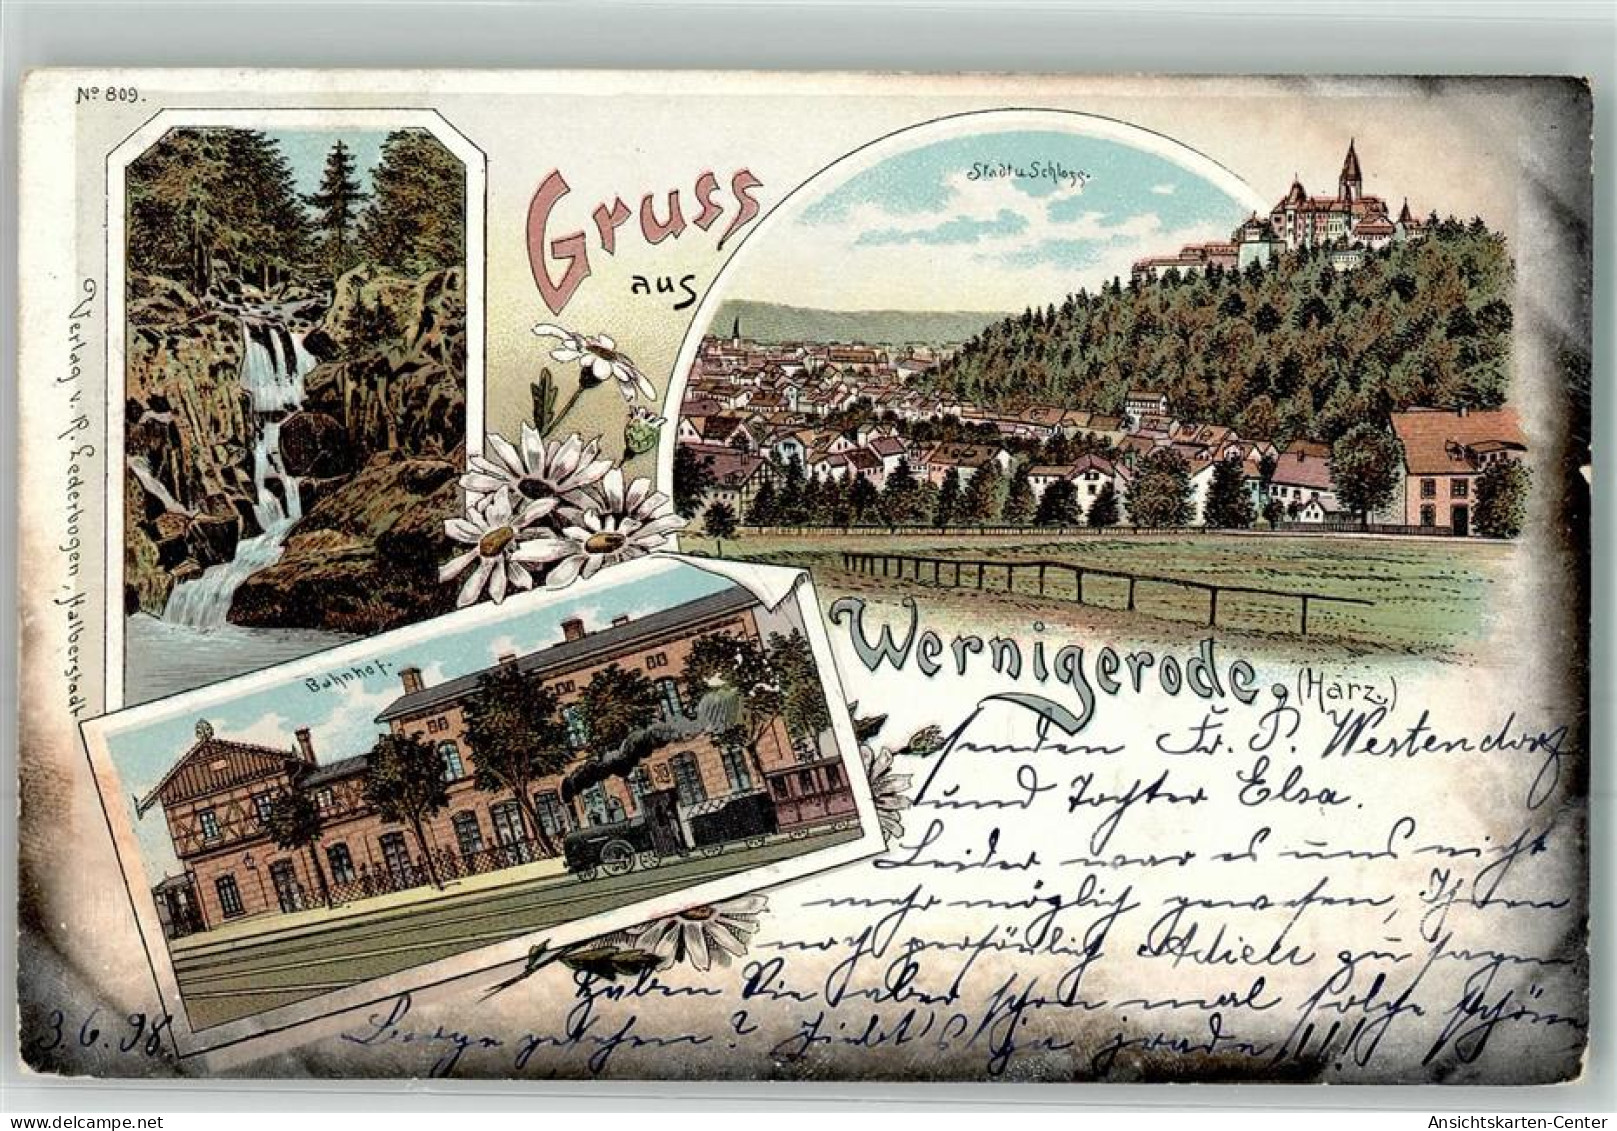 No 809.
Gruss
aus
Stadt u. Schloss.
Verlag v. R. Lederbogen, Halberstadt
Bahnhof.
Wernigerode, (Harz.)
senden Fr. P. Westendorf
und Tochter Elsa.
Leider war es uns nicht
mehr möglich gewesen, Ihnen
noch persönlich Adieu zu sagen
Haben Sie aber schon mal solche schöne
Berge gesehen? 's ja grade!!!!
3.6.98.
Ansichtskarten-Center